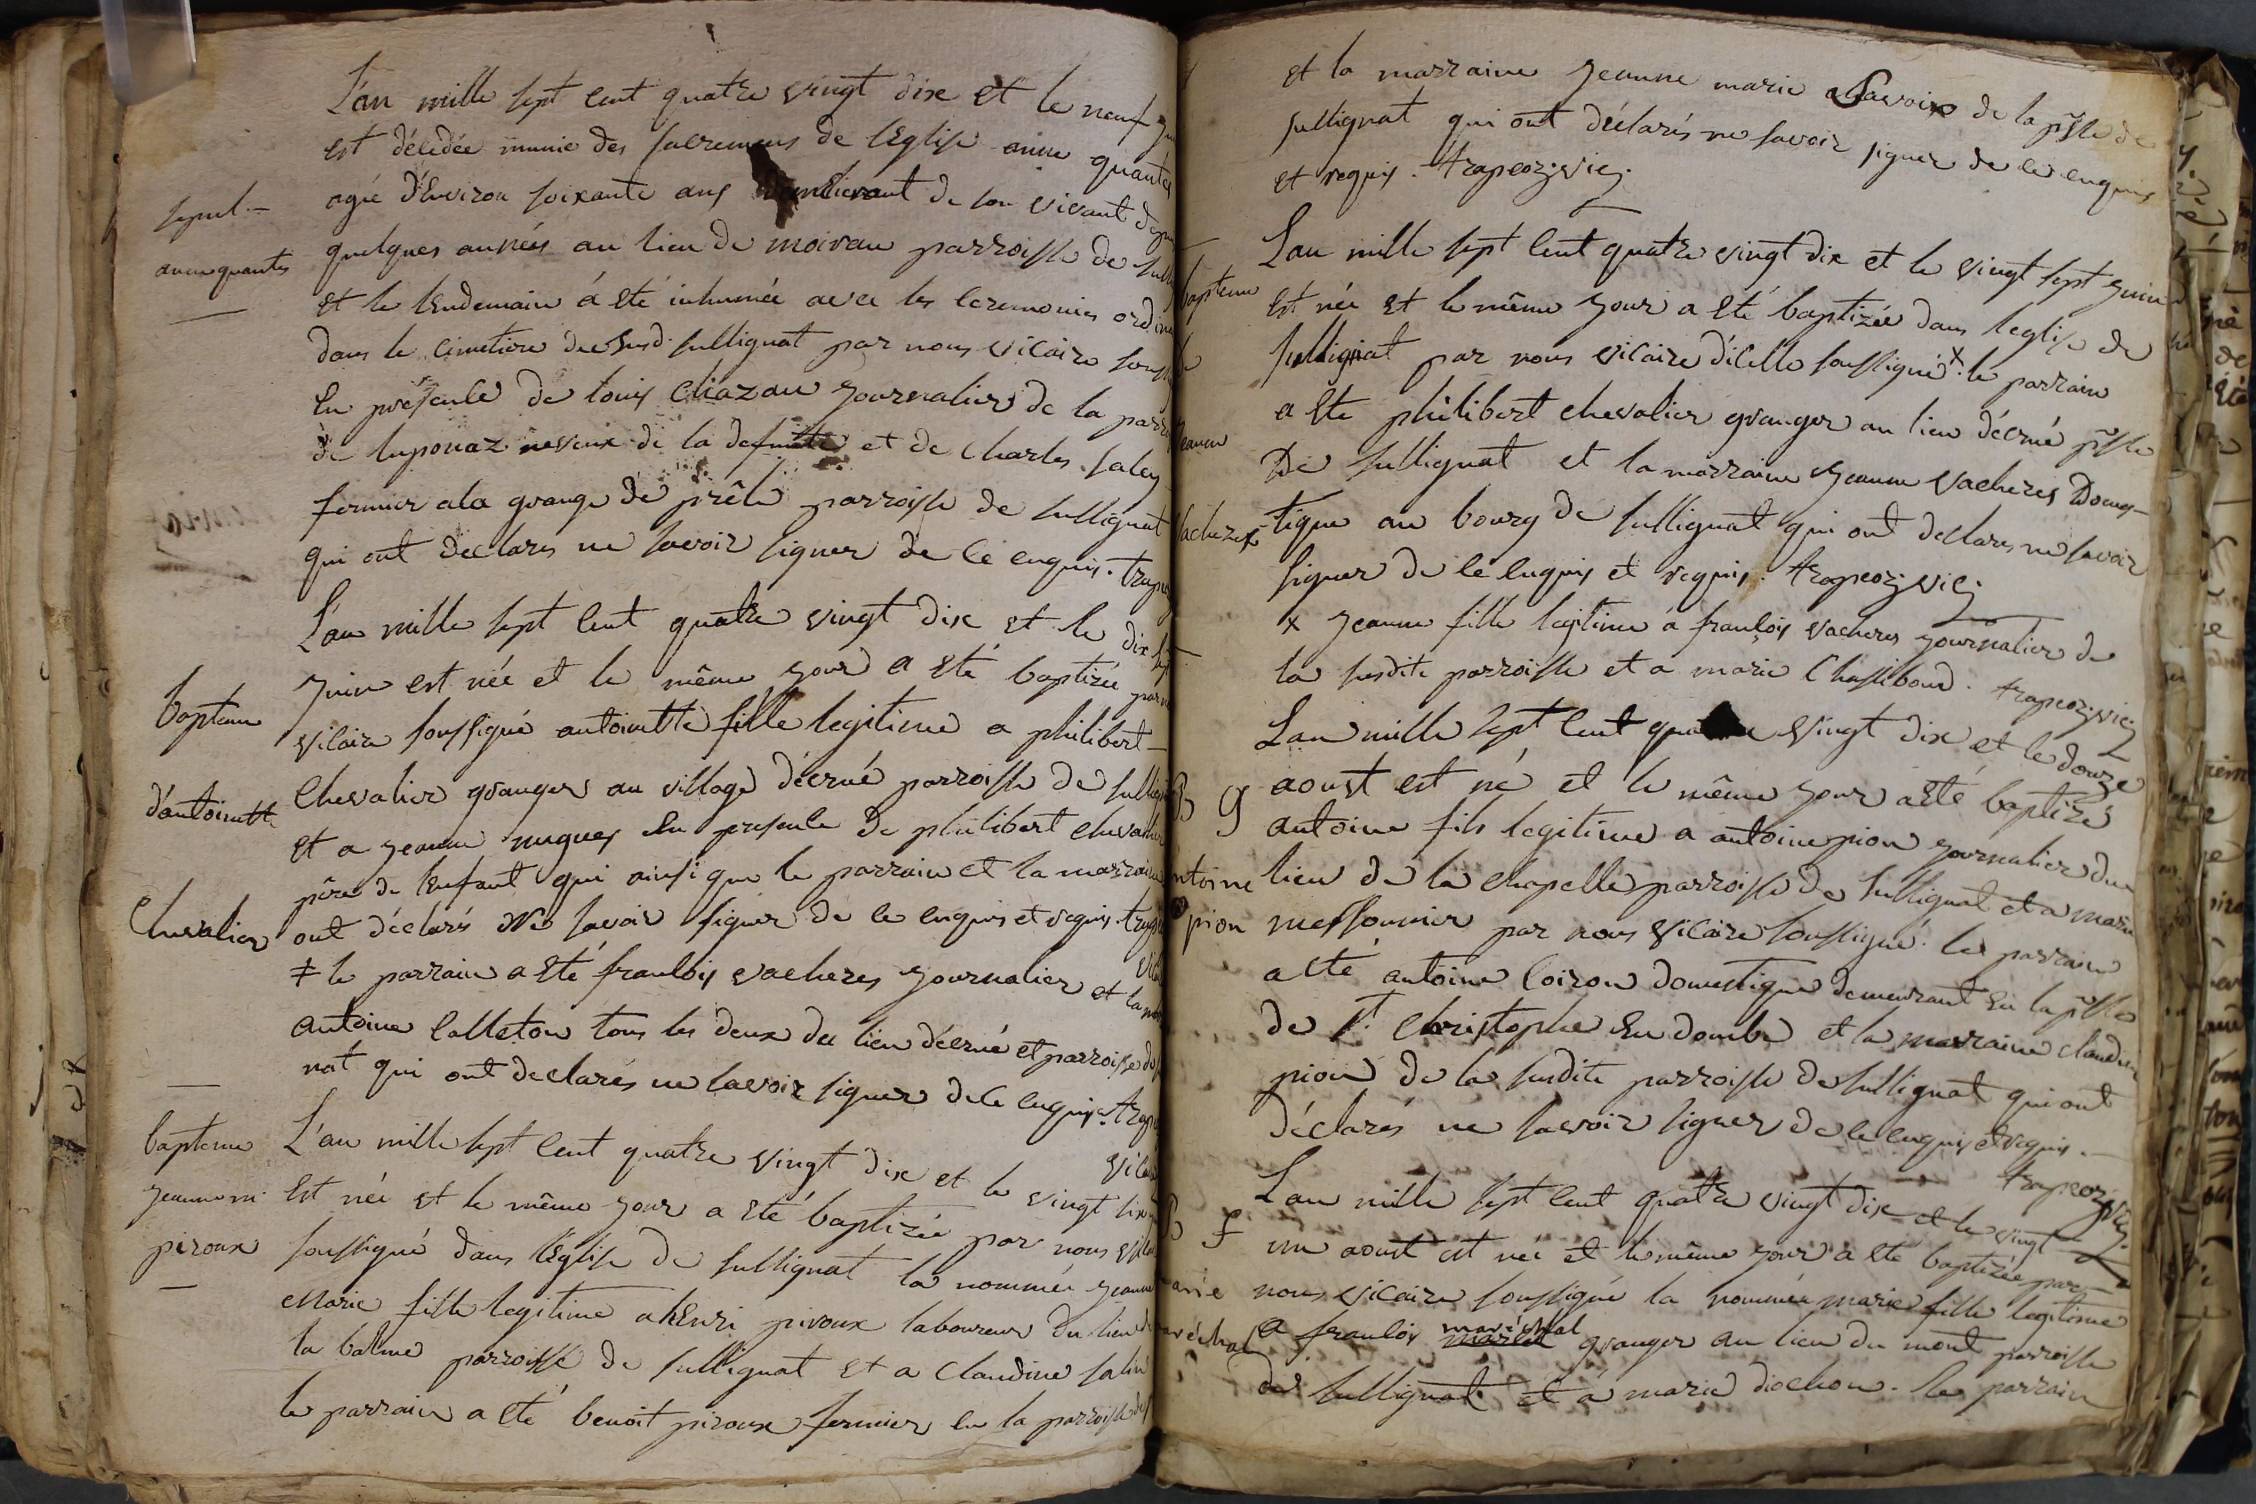 L'an mille sept cent quatre vingt dix et le neuf
est décédée munie des sacremens de l'Eglise anne quantes
sepul.
agée d'Environ soixante ans de son vivant
quelques années au lieu de moiran parroisse de
anne quantes
et le lendemain á eté inhumée avec les ceremonies
dans le cimetiere dudsusd. sullignat par nous vicaire
En présence de louis Chazau journalier de la
de luponaz neveux de la defunte et de Charles saley
fermier ala grange de prêle parroisse de sullignat
qui ont declarés ne savoir signer de ce enquis.
L'an mille sept cent quatre vingt dix et le dix
juin est née et le même jour a eté baptizée
bapteme
vicaire soussigné antoinette fille legitime a philibert
d'antoinette
Chevalier granger au village décrué parroisse de
et a jeanne nugues En presence de philibert
pêre de l'enfant qui ainsi que le parrain et la marraine
Chevalier
ont déclarés Ne savoir signer de ce enquis et requis.
‡ le parrain a eté francois vacheres journalier et
antoine Colleton tous les deux du lieu décrué et parroisse
nat qui ont declarés ne savoir signer de ce enquis.
bapteme
L'an mille sept cent quatre vingt dix et le vingt
jeanne m.
Est née et le même jour a eté baptizée par nous
piroux
soussigné dans l'Eglise de sullignat la nommée jeanne
Marie fille legitime a henri piroux laboureur du lieu
la balme parroisse de sullignat et a Claudine
le parrain a eté benoit piroux fermier en la parroisse
et la marraine jeanne marie de la psse de
sullignat qui ont déclarés ne savoir signer de ce enquis
et requis. trapeoz. vic.
bapteme
Lan mille sept cent quatre vingt dix et le vingt sept juin
est née et le même jour a eté baptizée dans leglise de
sullignat par nous vicaire d'icelle soussigné x. le parrain
a ete philibert chevalier granger au lieu décrué psse
De sullignat et la marraine jeanne vacheres Domes-
vacheres
tique au bourg de sullignat qui ont declarés ne savoir
signer de ce enquis et requis. trapeoz. vic.
x jeanne fille legitime á françois vacheres journalier de
la susdite parroisse et a marie Chassiboud. trapeoz. vic.
Lan mille sept cent vingt dix et le douze
B g
aoust est né et le même jour a eté baptizé
antoine fils legitime a antoine pion journalier du
antoine
lieu de la chapelle parroisse de sullignat et a marie
pion
messonnier par nous vicaire soussigné. le parrain
a eté antoine Coiron domestique demeurant en la psse
de St. Christophe En dombe et la marraine claudine
pion de la susdite parroisse de sullignat qui ont
déclarés ne savoir signer de ce enquis et requis.
trapeoz. vic.
Lan mille sept cent quatre vingt dix et le vingt
B f
un aoust est née et le même jour a ete baptizée par
marie
nous vicaire soussigné la nommée marie fille legitime
maréchal
a francois maréchal granger au lieu du mont parroisse
de sullignat et á marie diochon. le parrain